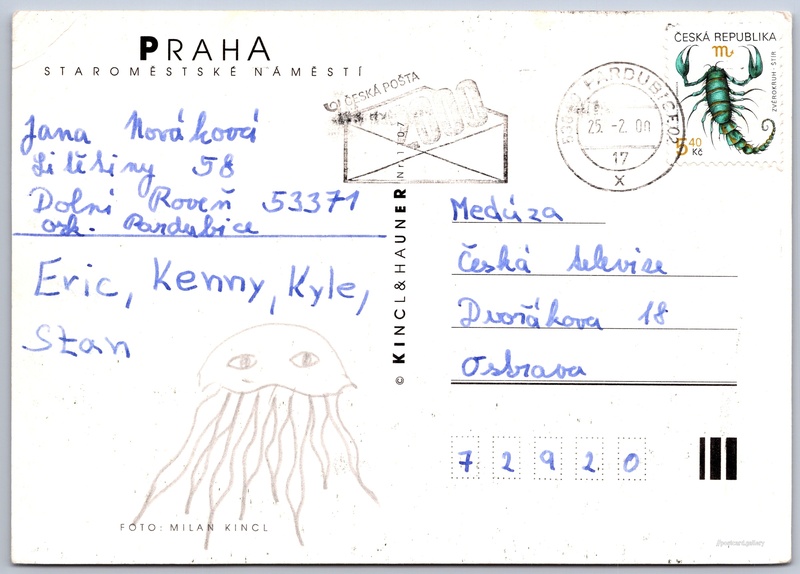 PRAHA
STAROMĚSTSKÉ NÁMĚSTÍ
Jana Nováková
Litětiny 58
Dolní Roveň 53371
osk. Pardubice
Eric, Kenny, Kyle,
Stan
FOTO: MILAN KINCL
© KINCL & HAUNER
ČESKÁ POŠTA
PARDUBICE 02
25.-2.00
17
X
ČESKÁ REPUBLIKA
ZVĚROKRUH - ŠTÍR
5 40
Kč
Medúza
Česká televize
Dvořákova 18
Ostrava
7 2 9 2 0